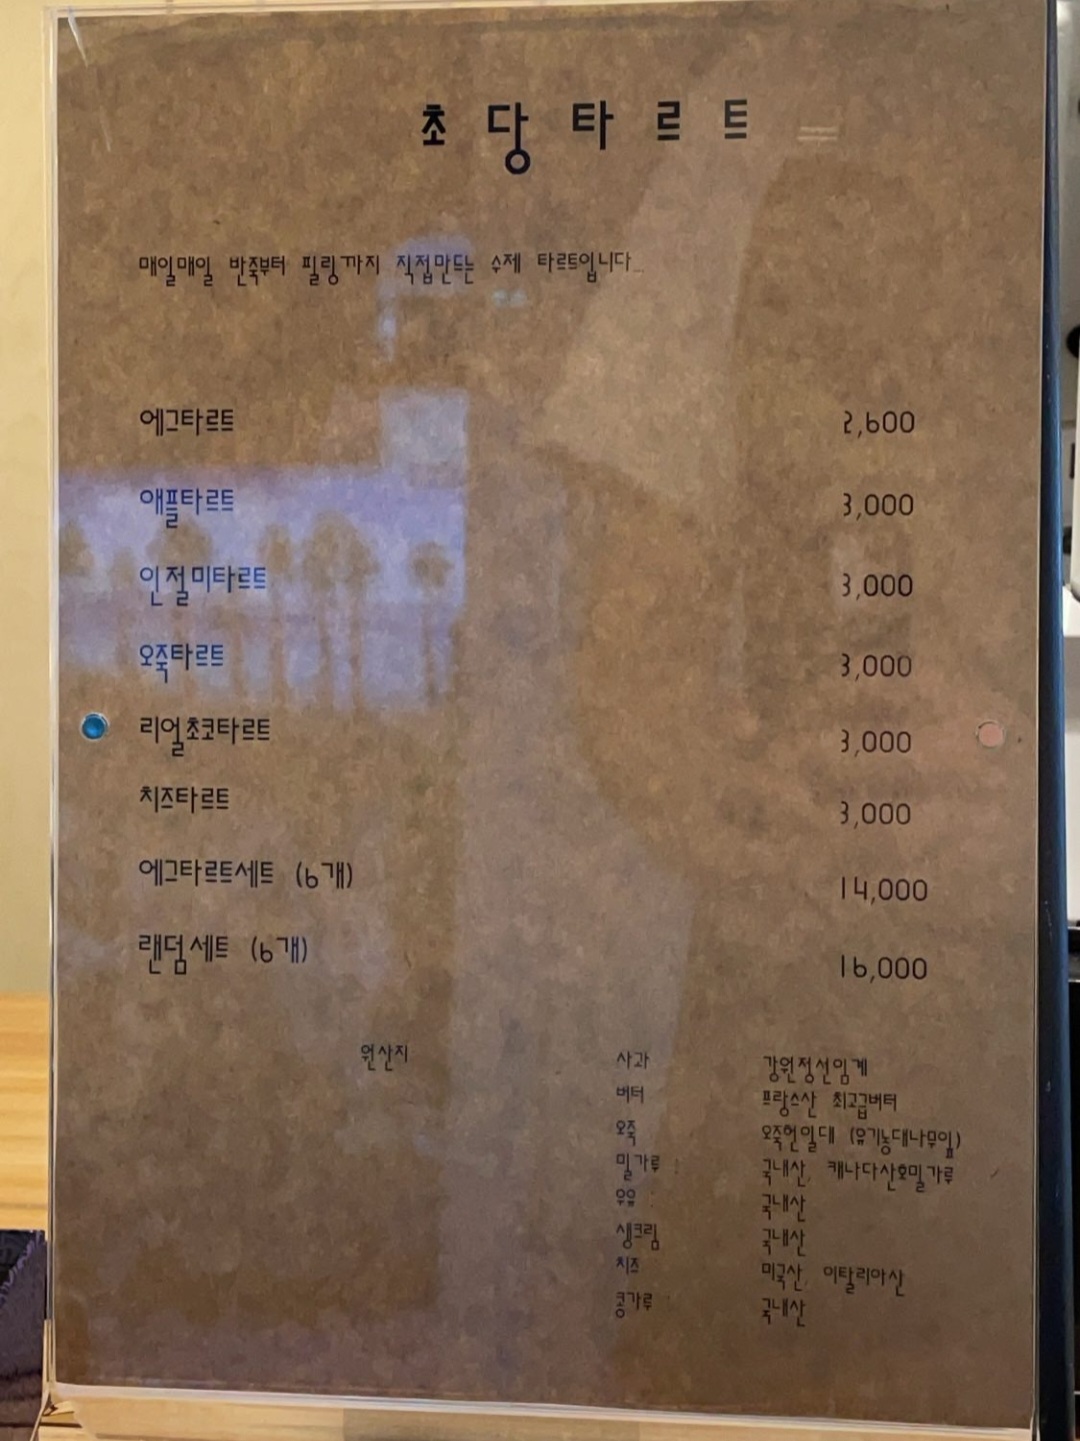 초당타르트
매일매일 반죽부터 필링까지 직접만드는 수제 타르트입니다...
에그타르트 2,600
애플타르트 3,000
인절미타르트 3,000
오죽타르트 3,000
리얼초코타르트 3,000
치즈타르트 3,000
에그타르트세트 (6개) 14,000
랜덤세트 (6개) 16,000
원산지 사과 강원정선임계
버터 프랑스산 최고급버터
오죽 오죽헌일대 (유기농대나무잎)
밀가루 : 국내산, 캐나다산호밀가루
우유 : 국내산
생크림 국내산
치즈 미국산, 이탈리아산
콩가루 국내산